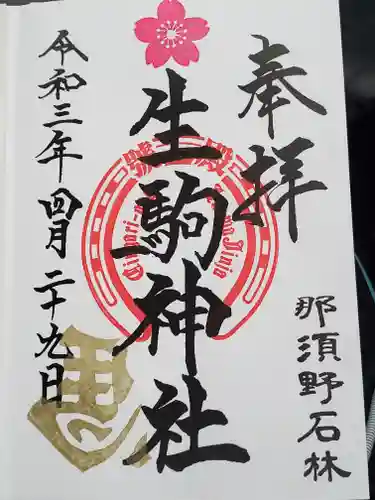 奉拝
那須野石林
生駒神社
令和三年四月二十九日